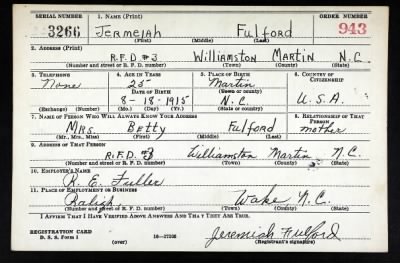 SERIAL NUMBER 1. NAME (Print) ORDER NUMBER
3266 Jermeiah Fulford 943
(First) (Middle) (Last)
2. ADDRESS (Print)
R.F.D. #3 Williamston Martin N.C.
(Number and street or R. F. D. number) (Town) (County) (State)
3. TELEPHONE 4. AGE IN YEARS 5. PLACE OF BIRTH 6. COUNTRY OF CITIZENSHIP
None 25 Martin
DATE OF BIRTH (Town or county)
8-18-1915 N.C. U.S.A.
(Exchange) (Number) (Mo.) (Day) (Yr.) (State or country)
7. NAME OF PERSON WHO WILL ALWAYS KNOW YOUR ADDRESS 8. RELATIONSHIP OF THAT PERSON
Mrs. Betty Fulford mother
(Mr., Mrs., Miss) (First) (Middle) (Last)
9. ADDRESS OF THAT PERSON
R.F.D. #3 Williamston Martin N.C.
(Number and street or R. F. D. number) (Town) (County) (State)
10. EMPLOYER'S NAME
R. E. Fuller
11. PLACE OF EMPLOYMENT OR BUSINESS
Raleigh Wake N.C.
(Number and street or R. F. D. number) (Town) (County) (State)
I AFFIRM THAT I HAVE VERIFIED ABOVE ANSWERS AND THAT THEY ARE TRUE.
REGISTRATION CARD
D. S. S. Form 1 16-17105 Jeremiah Fulford
(over) (Registrant's signature)